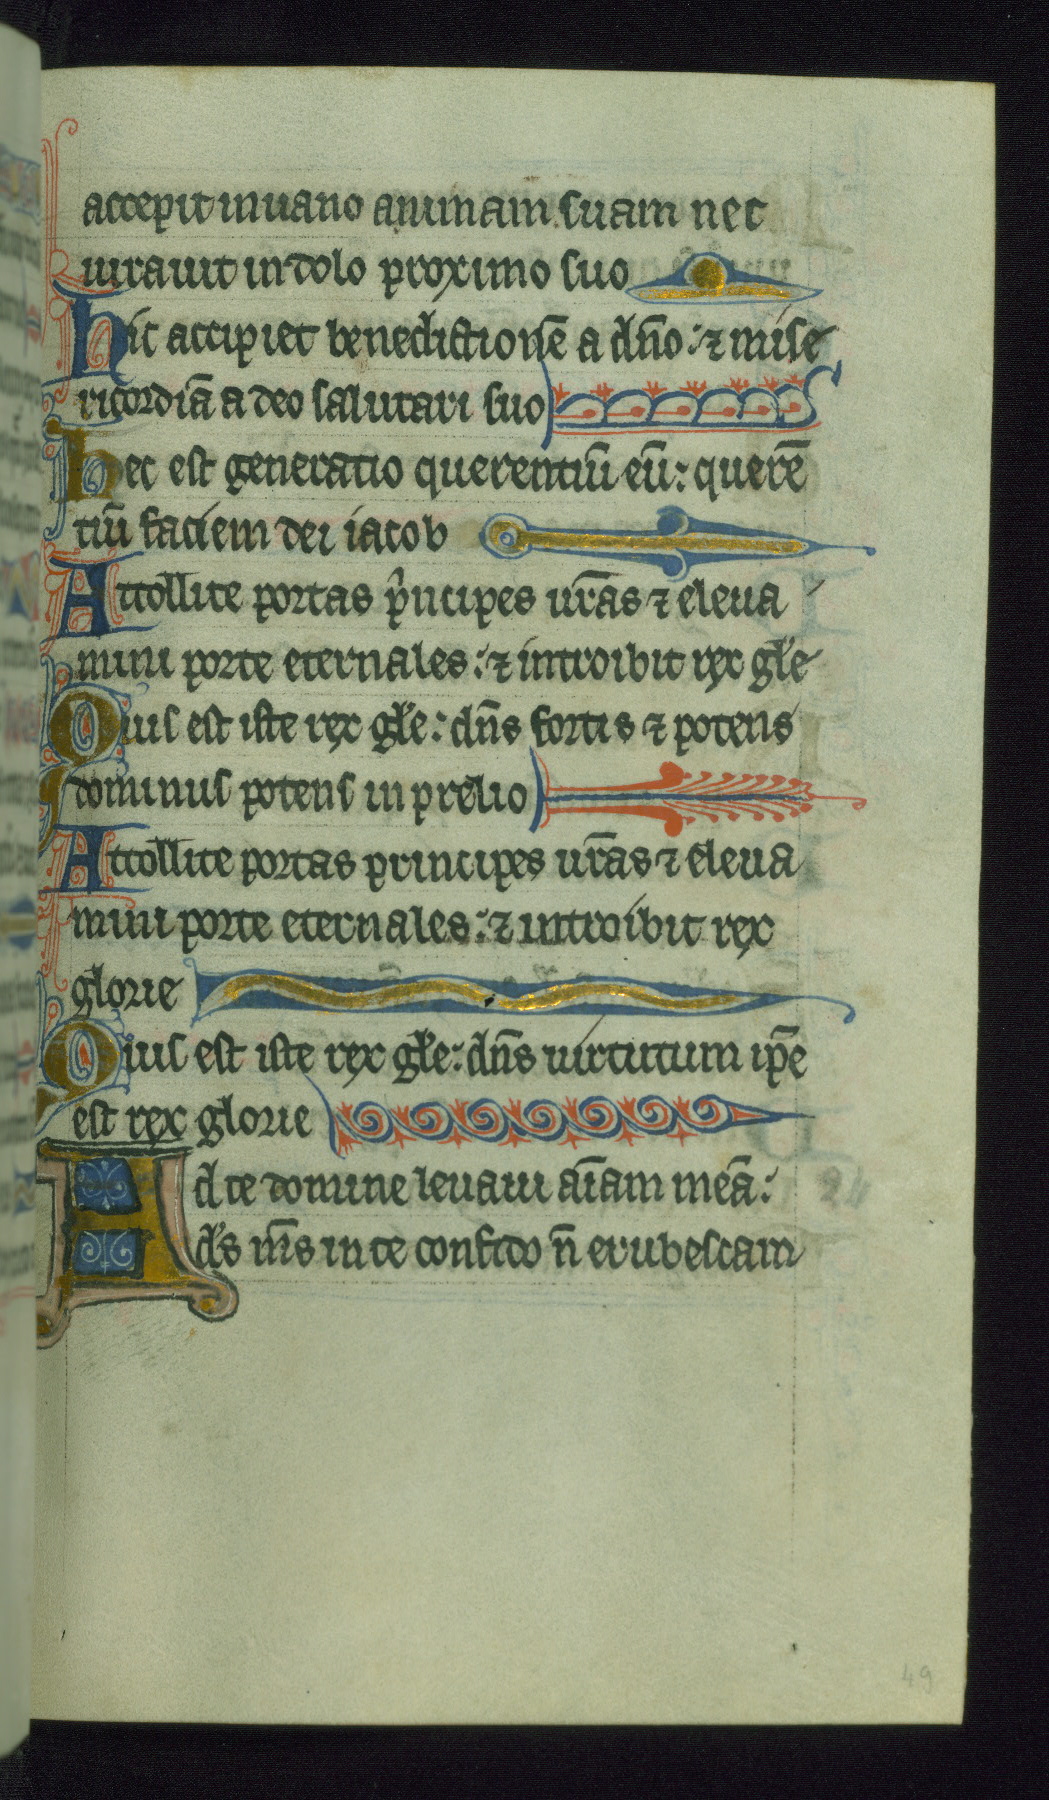 accepit in uano animam suam nec
iurauit in dolo proximo suo
Hic accipiet benedictionē a dño: ⁊ mise
ricordiā a deo salutari suo
Hec est generatio querentiū eū: querē
tiū faciem dei iacob
Attollite portas pⁱncipes ur̄as ⁊ eleua
mini porte eternales: ⁊ introibit rex gl̄e
Quis est iste rex gl̄e: dn̄s fortis ⁊ potens
dominus potens in prelio
Attollite portas principes ur̄as ⁊ eleua
mini porte eternales: ⁊ introibit rex
glorie
Quis est iste rex gl̄e: dn̄s uirtutum ip̄e
est rex glorie
Ad te domine leuaui aīam meā:
ds̄ ms̄ in te confido n̄ erubescam
49